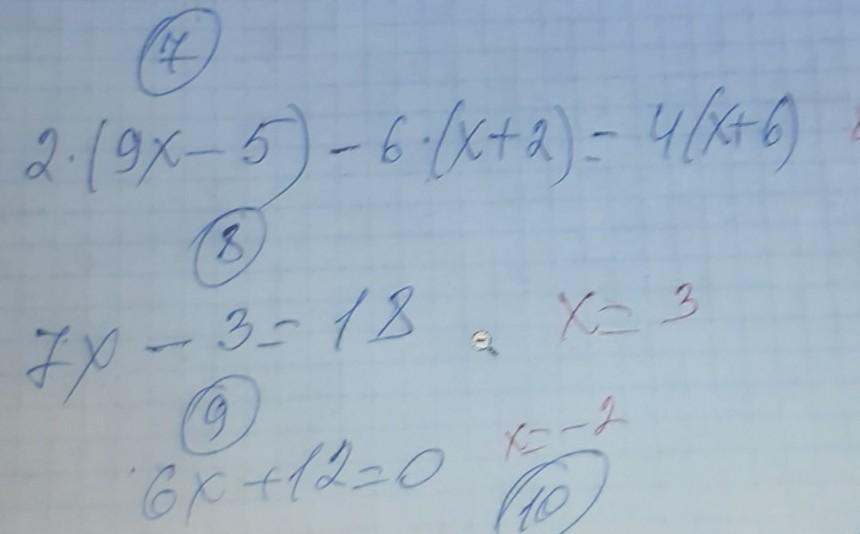 7
2·(9x-5)-6·(x+2)=4(x+6)
8
7x-3=18 x=3
9
6x+12=0 x=-2
10